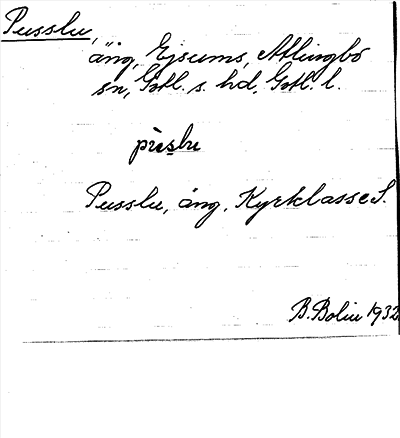 Pusslu,
äng, Ejsums, Atlingbo
sn, Gotl. s. hd. Gotl. l.
Pusslu, äng, Kyrklasse S.
B. Bolin 1932